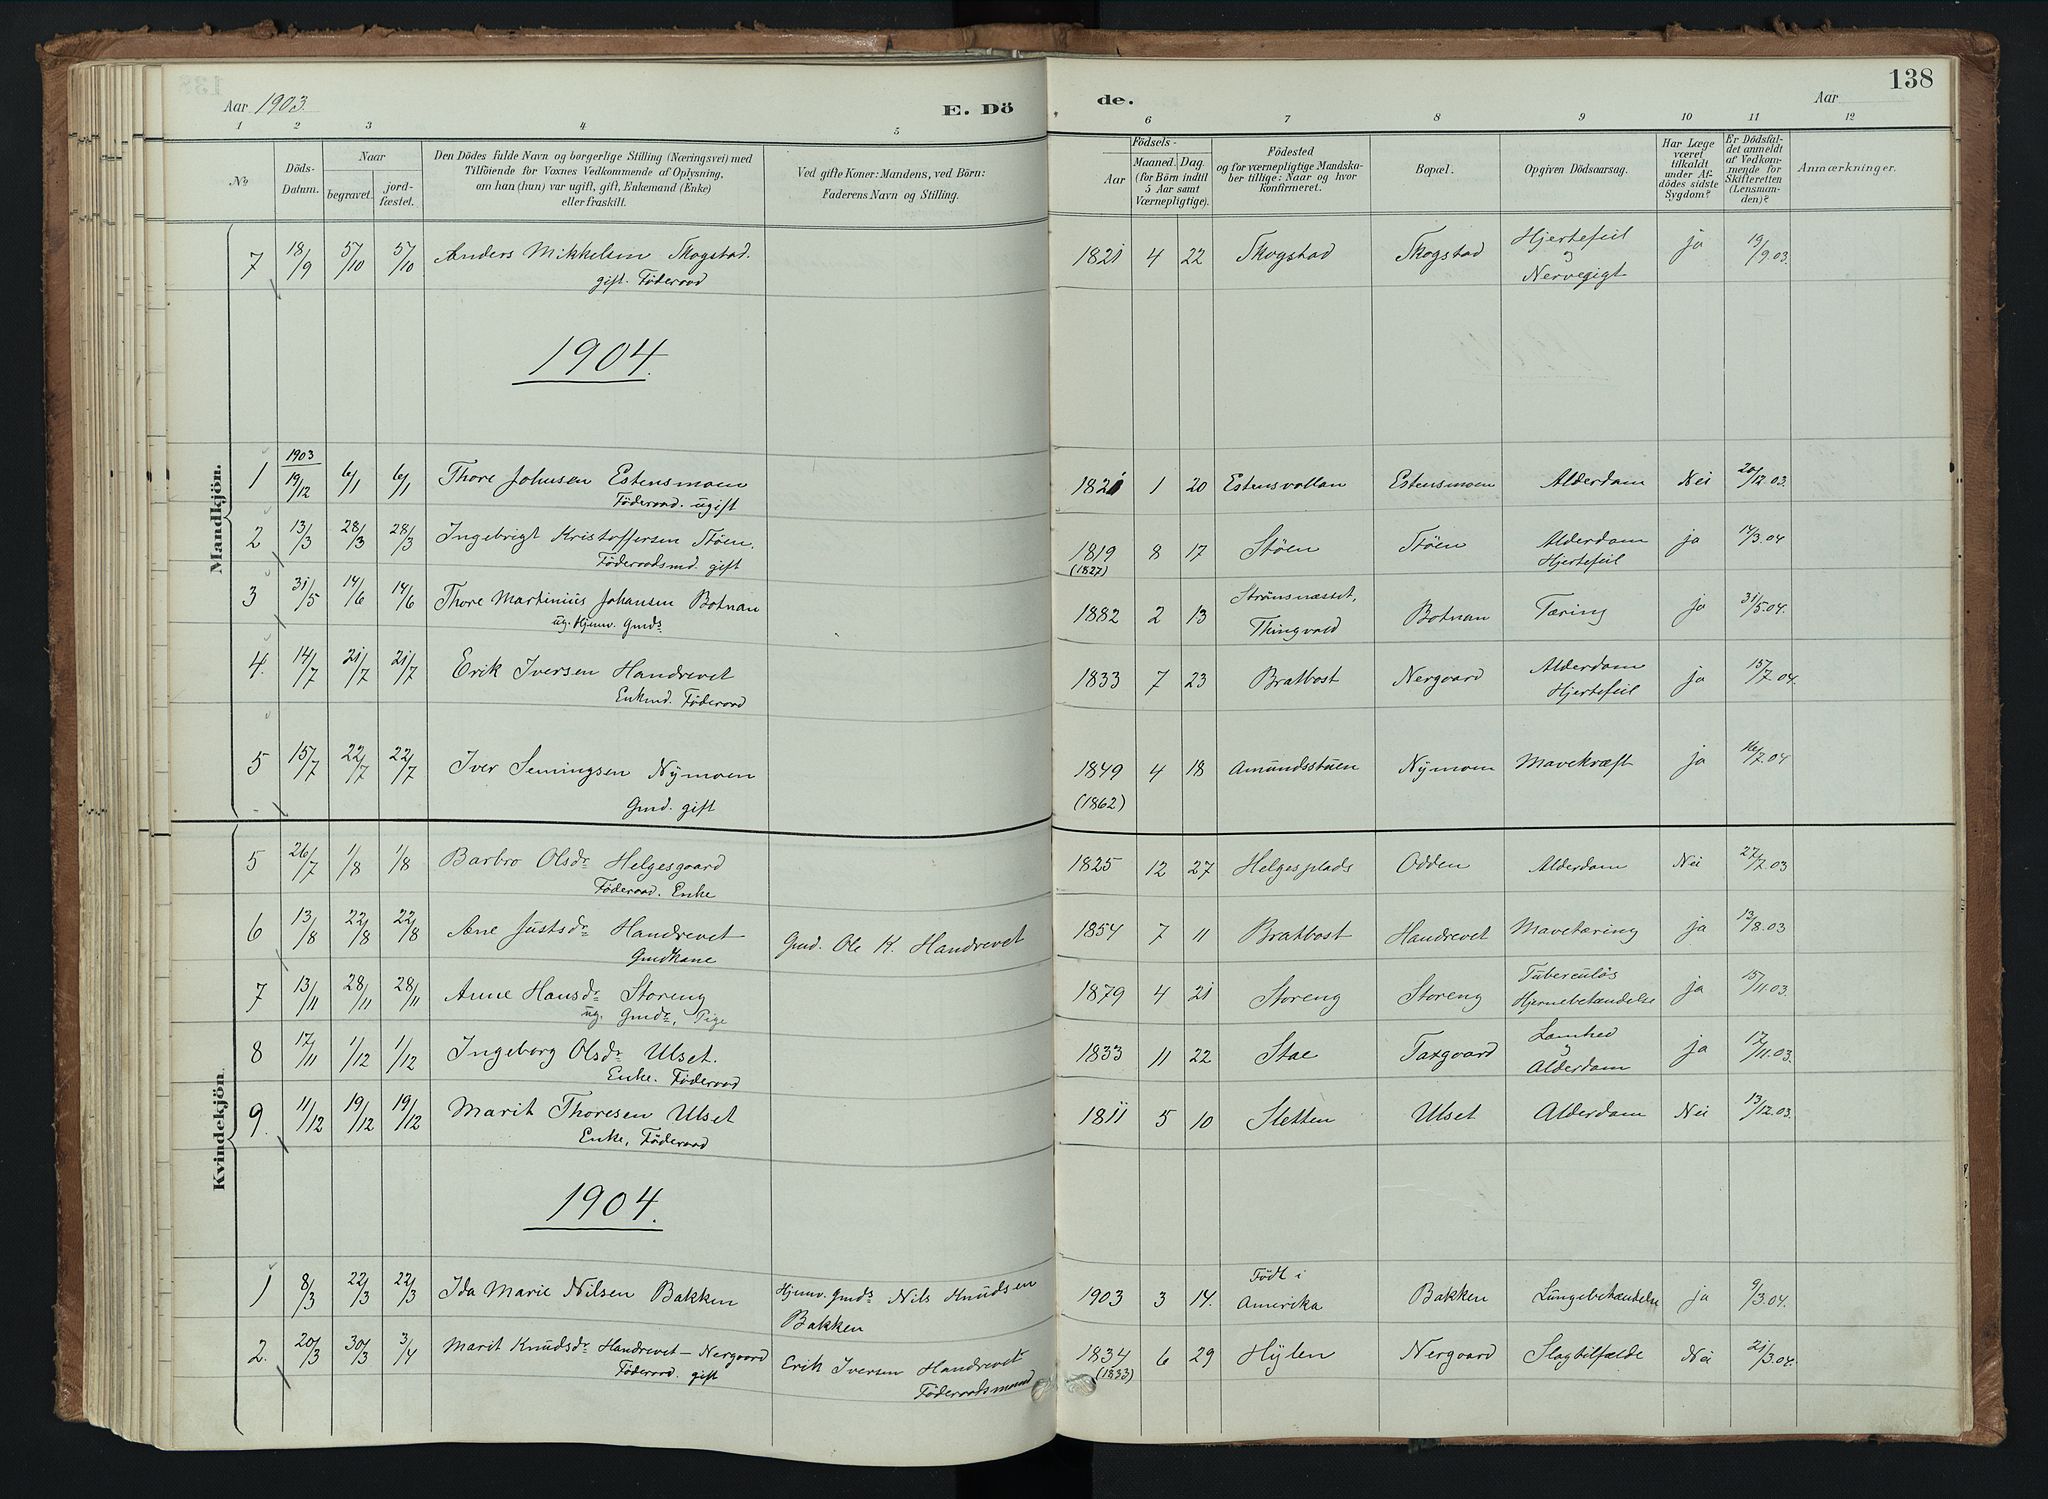 138
Aar 1903.
E. Dö
de.
Aar
1 2 3 4 5 6 7 8 9 10 11 12
No
Döds-
Datum.
Naar
begravet.
jord-
fæstet.
Den Dödes fulde Navn og borgerlige Stilling (Næringsvei) med
Tilföiende for Voxnes Vedkommende af Oplysning,
om han (hun) var ugift, gift, Enkemand (Enke)
eller fraskilt.
Ved gifte Koner: Mandens, ved Börn:
Faderens Navn og Stilling.
Födsels-
Aar
Maaned. Dag.
(for Börn indtil
5 Aar samt
Værnepligtige).
Födested
og for værnepligtige Mandska-
ber tillige: Naar og hvor
konfirmeret.
Bopæl.
Opgiven Dödsaarsag.
Har Læge
været
tilkaldt
under Af-
dödes sidste
Sygdom?
Er Dödsfal-
det anmeldt
af Vedkom-
mende for
Skifteretten
(Lensman-
den)?
Anmærkninger.
Mandkjön.
7 18/9 5/10 5/10 Anders Mikkelsen Skogstad. 1821 4 22 Skogstad Skogstad Hjertefeil ja 19/9.03.
gift. Föderaad
& Nervegigt
1904.
1903
1 19/12 6/1 6/1 Thore Johnsen Estensmoen 1821 1 20 Estensvollan Estensmoen Alderdom Nei 20/12.03.
Föderaad. ugift
2 13/3 28/3 28/3 Ingebrigt Kristoffersen Stöen. 1819 8 17 Stöen Stöen Alderdom ja 14/3.04
Föderaadsmd. gift (1827) Hjertefeil
3 31/5 14/6 14/6 Thore Martinius Johansen Botnan 1882 2 13 Strömsnæsset, Botnan Tæring ja 31/5.04.
ug. Hjemv. Gmds. Thingvold
4. 14/7 21/7 21/7 Erik Iversen Handrevet 1833 7 23 Bratbost Nergaard Alderdom ja 15/7.04.
Enkmd. Föderaad Hjertefeil
5 15/7 22/7 22/7 Iver Semingsen Nymoen 1849 4 18 Amundsstuen Nymoen Mavekræft ja 16/7.04
Gmd. gift (1862)
Kvindekjön.
5 26/7 1/8 1/8 Barbro Olsdr Helgesgaard 1825 12 27 Helgesplads Odden Alderdom Nei 27/7.03
Föderaad. Enke
6 13/8 22/8 22/8 Ane Justsdr Handrevet Gmd. Ole K. Handrevet 1854 7 11 Bratbost Handrevet Mavetæring ja 13/8.03
Gmdkone
7 13/11 28/11 28/11 Anne Hansdr Storeng 1879 4 21 Storeng Storeng Tuberculös ja 15/11.03.
ug. Gmds, Pige Hjernebetændelse
8 17/11 1/12 1/12 Ingeborg Olsdr Ulset. 1833 11 22 Stae Taxgaard Lamhed ja 17/11.03.
Enke. Föderaad & Alderdom
9. 11/12 19/12 19/12 Marit Thoresen Ulset 1811 5 10 Sletten Ulset Alderdom Nei 13/12.03.
Enke, Föderaad
1904.
1 8/3 22/3 22/3 Ida Marie Nilsen Bakken Hjemv. Gmds Nils Knudsen Bakken 1903 3 14. Födt i Amerika Bakken Lungebetændelse ja 9/3.04.
2. 20/3 30/3 3/4 Marit Knudsdr Handrevet – Nergaard Erik Iversen Handrevet 1834 6 29 Hylen Nergaard Slagtilfælde Nei 21/3.04.
Föderaad. gift Föderaadsmand (1833)